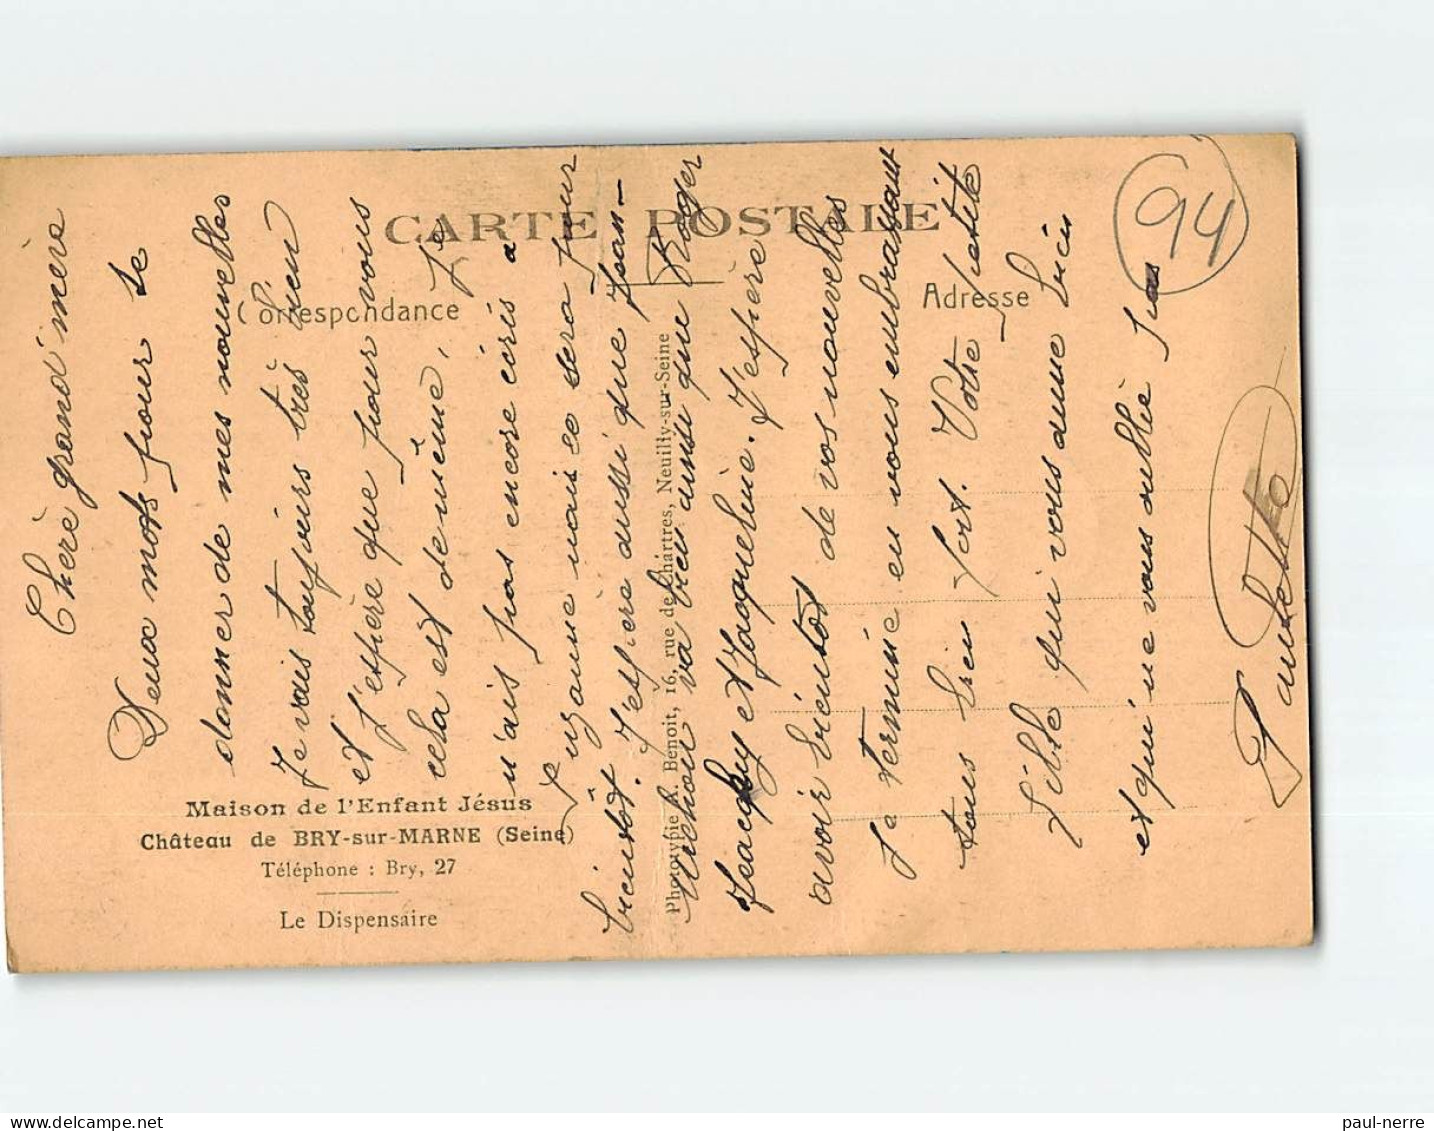 CARTE POSTALE
Correspondance
Adresse
94
Maison de l'Enfant Jésus
Château de BRY-sur-MARNE (Seine)
Téléphone : Bry, 27
Le Dispensaire
Phototypie A. Benoit, 16, rue de Chartres, Neuilly-sur-Seine
Chère grand'mère
Deux mots pour te
donner de mes nouvelles
Je vais toujours très bien
et J'espère que pour vous
cela est de même, Je
n'ais pas encore écris a
Suzanne mais ce sera pour
bientôt. J'espère aussi que Jean-
va bien aussi que Roger
Jeacquy et Jaqueline. J'espère
avoir bientôt de vos nouvelles
Je termine en vous embrassant
tous bien fort. Votre Petite
fille qui vous aime bien
et qui ne vous oublie pas
Paulette
paul-nerre